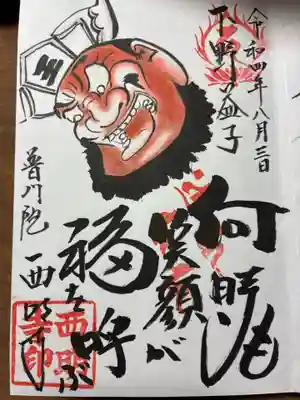 令和四年八月三日
下野益子
何時も
笑顔が
福を呼ぶ
普門院
西明寺
王
西明
寺印